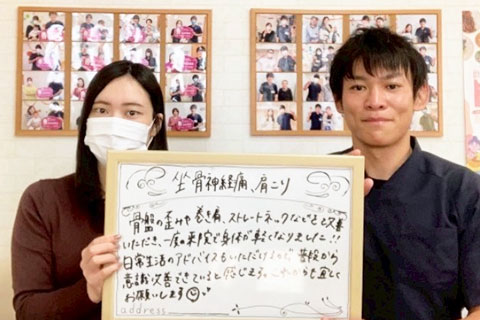 坐骨神経痛、肩こり
骨盤の歪みや巻き肩、ストレートネックなどを改善
いただき、一度の来院で身体が軽くなりました!!
日常生活のアドバイスもいただけるので普段から
意識改善できていると感じます。これからも宜しく
お願いします☺
address